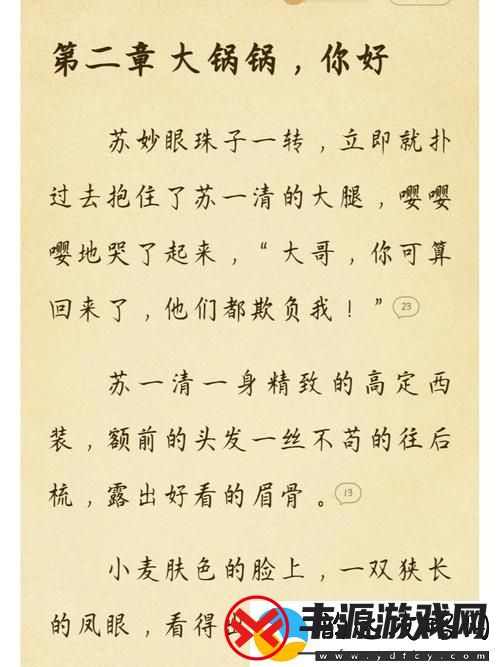 第二章 大锅锅，你好
苏妙眼珠子一转，立即就扑
过去抱住了苏一清的大腿，嘤嘤
嘤地哭了起来，“大哥，你可算
回来了，他们都欺负我！”23
苏一清一身精致的高定西
装，额前的头发一丝不苟的往后
梳，露出好看的眉骨。13
小麦肤色的脸上，一双狭长
的凤眼，看得出
丰源游戏网
www.ydfcy.com